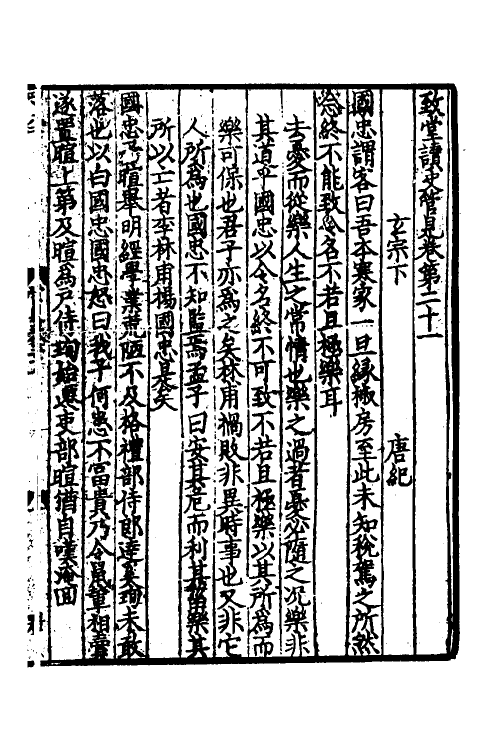 致堂讀史管見卷第二十一
玄宗下　唐紀
國忠謂客曰吾本寒家一旦緣椒房至此未知稅駕之所然
念終不能致令名不若且極樂耳
去憂而從樂人生之常情也樂之過者憂必隨之况樂非
其道乎國忠以令名終不可致不若且極樂以其所為而
樂可保也君子亦為之矣林甫禍敗非異時事也又非它
人所為也國忠不知監焉孟子曰安其危而利其菑樂其
所以亡者李林甫楊國忠是矣
國忠子暄舉明經學業荒陋不及格禮部侍郎達奚珣未敢
落也以白國忠國忠怒曰我子何患不富貴乃令鼠輩相賣
遂置暄上第及暄為戶侍珣始遷吏部暄猶自嘆淹回